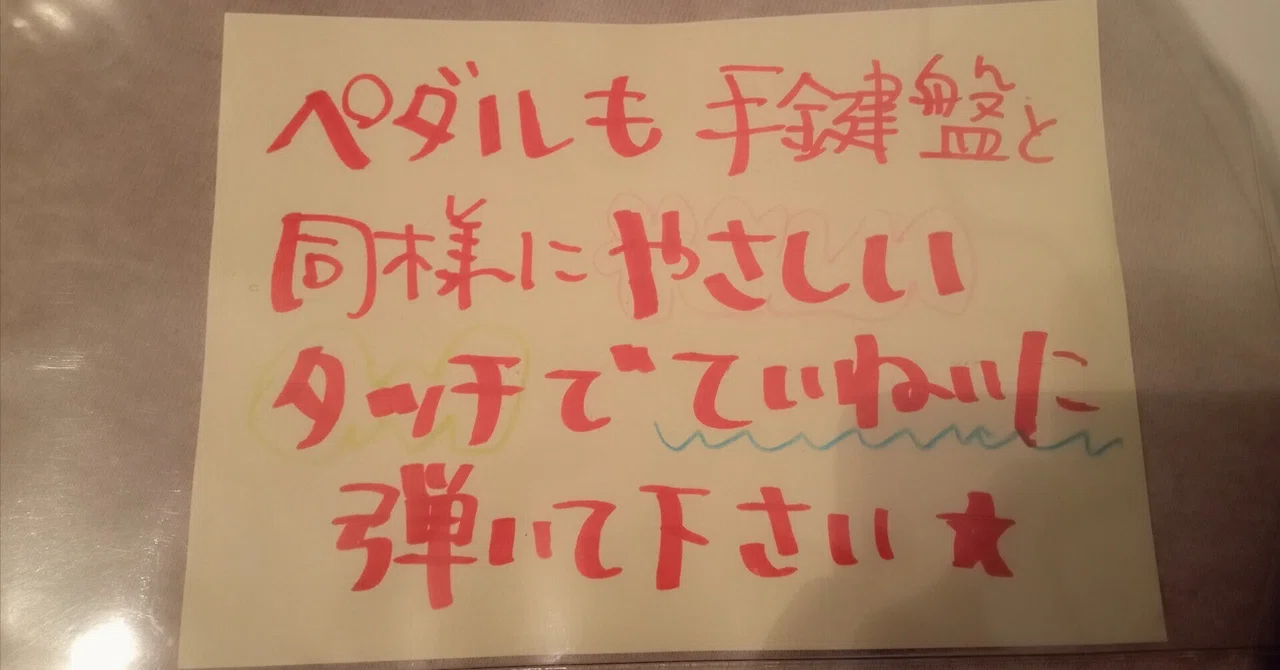 ペダルも手鍵盤と
同様にやさしい
タッチでていねいに
弾いて下さい★